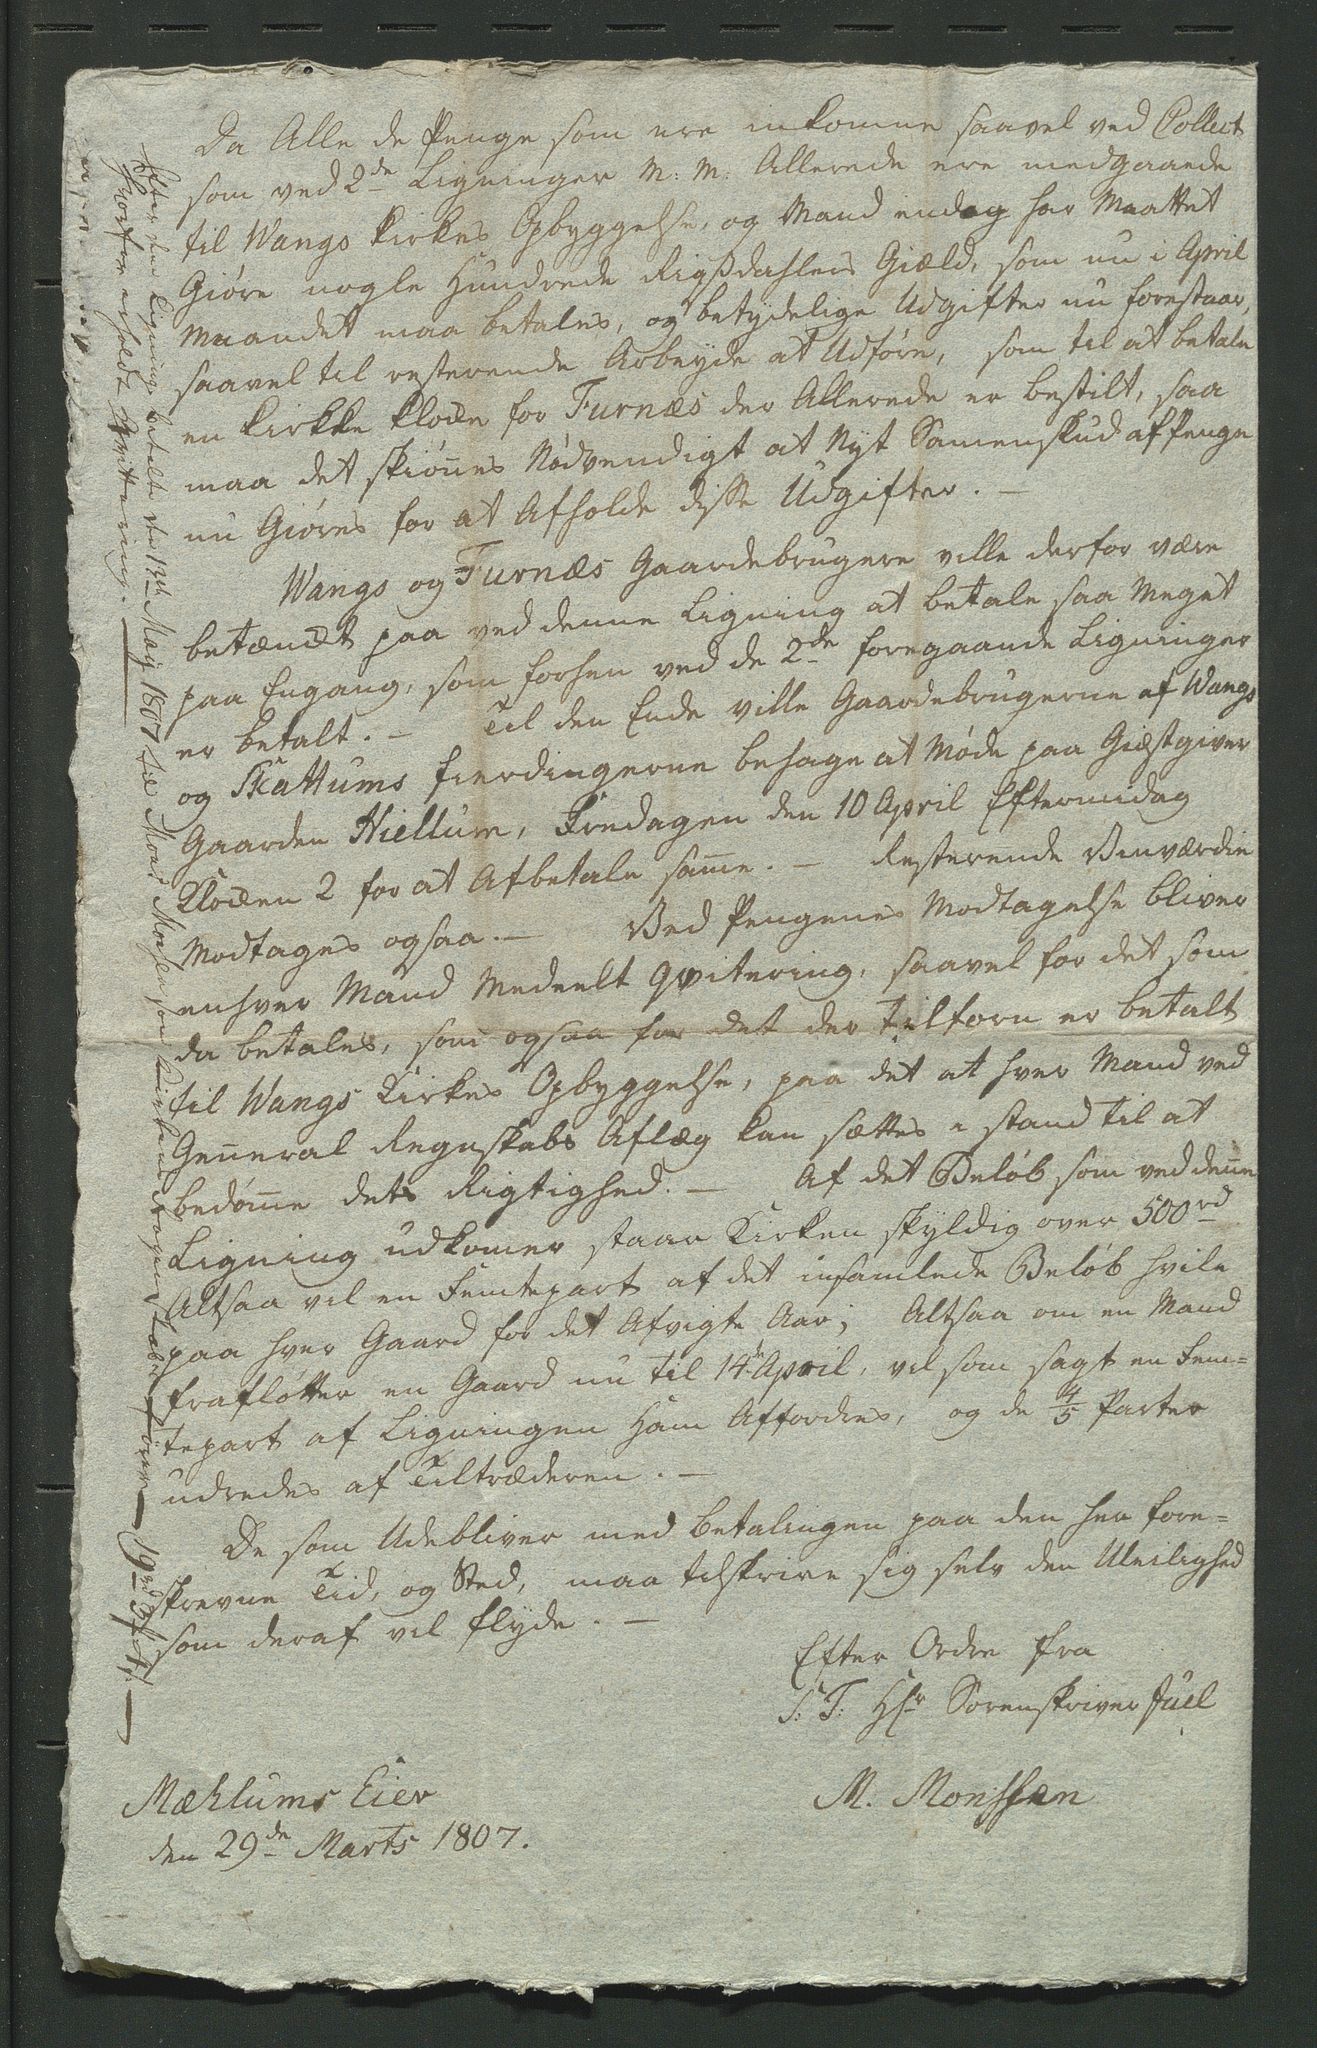 Da Alle de Penge som ere inkomne saavel ved Collect
som ved 2de Ligninger M: M: Allerede ere medgaaede
til Wangs Kirkes Opbyggelse, og Mand endog har Maattet
Giøre nogle Hundrede Rigsdahlers Giæld, som nu i April
Maanedet maa betales, og betydelige Udgifter nu forestaar,
saavel til resterende Arbeyde at Udføre, som til at betale
en Kirkke Klocke for Furnæs der Allerede er bestilt, saa
maa det skiønnes Nødvendigt at Nyt Samenskud af Penge
nu Giøres for at Afholde disse Udgifter. —
Wangs og Furnæs Gaardebrugere ville derfor være
betænckt paa ved denne Ligning at betale saa Meget
paa Engang, som forhen ved de 2de foregaaende Ligninger
er betalt. — Til den Ende ville Gaardebrugerne af Wangs
og Skattums fierdingerne behage at Møde paa Giæstgiver
Gaarden Hiellum, Fredagen den 10 April Eftermidag
Klocken 2 for at Afbetale samme. — Resterende
Modtages ogsaa. — Ved Pengenes Modtagelse bliver
enhver Mand Medeelt Qvitering, saavel for det som
da betales, som ogsaa for det der tilforn er betalt
til Wangs Kirkes Opbyggelse, paa det at hver Mand ved
General Regnskabs Aflæg kan sættes i stand til at
bedømme dets Rigtighed. — Af det Beløb som ved denne
Ligning udkomer staar Kirken skyldig over 500rd
Altsaa vil en Femtepart af det insamlede Beløb hvile
paa hver Gaard for det Afvigte Aar; Altsaa om en Mand
frafløtter en Gaard nu til 14de April, vil som sagt en Fem=
tepart af Ligningen Ham Affordres, og de 4/5 Parter
udredes af Tiltræderen. —
De som Udebliver med betalingen paa den her fore=
skrevne Tid, og Sted, maa tilskrive sig selv den Uleilighed
som deraf vil flyde. —
Efter Ordre fra
S: T: Hr Sorenskriver Juel
M. Monssen
Mæhlums Eier
den 29de Marts 1807.
Efter den Ligning betalte den 13de May 1807 til Mons Monsen som Kirkens
hvorfor erholdt Qvittering.